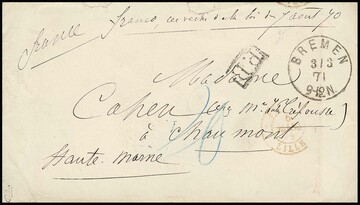 France
Franco, en vertu de la loi du 7 août 70
P.D.
BREMEN
3/3
71
9-12N.
Madame
Capen (chez Mr
à Chaumont
Haute-Marne
LILLE